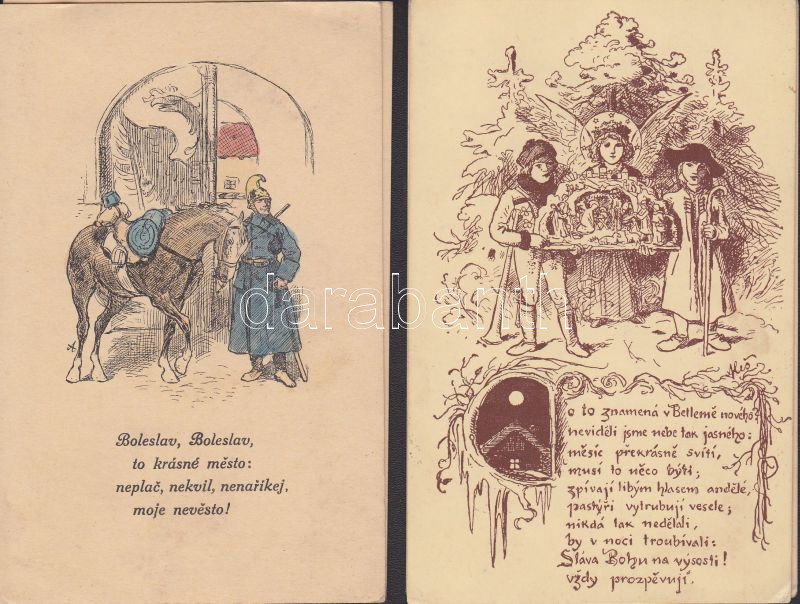 Boleslav, Boleslav,
to krásné město:
neplač, nekvil, nenaříkej,
moje nevěsto!
darabanth
Co to znamená v Betlemě nového?
neviděli jsme nebe tak jasného:
měsíc překrásně svítí,
musí to něco býti;
zpívají libým hlasem andělé,
pastýři vytrubují vesele;
nikdá tak nedělali,
by v noci troubívali:
Sláva Bohu na výsosti!
vždy prozpěvují.